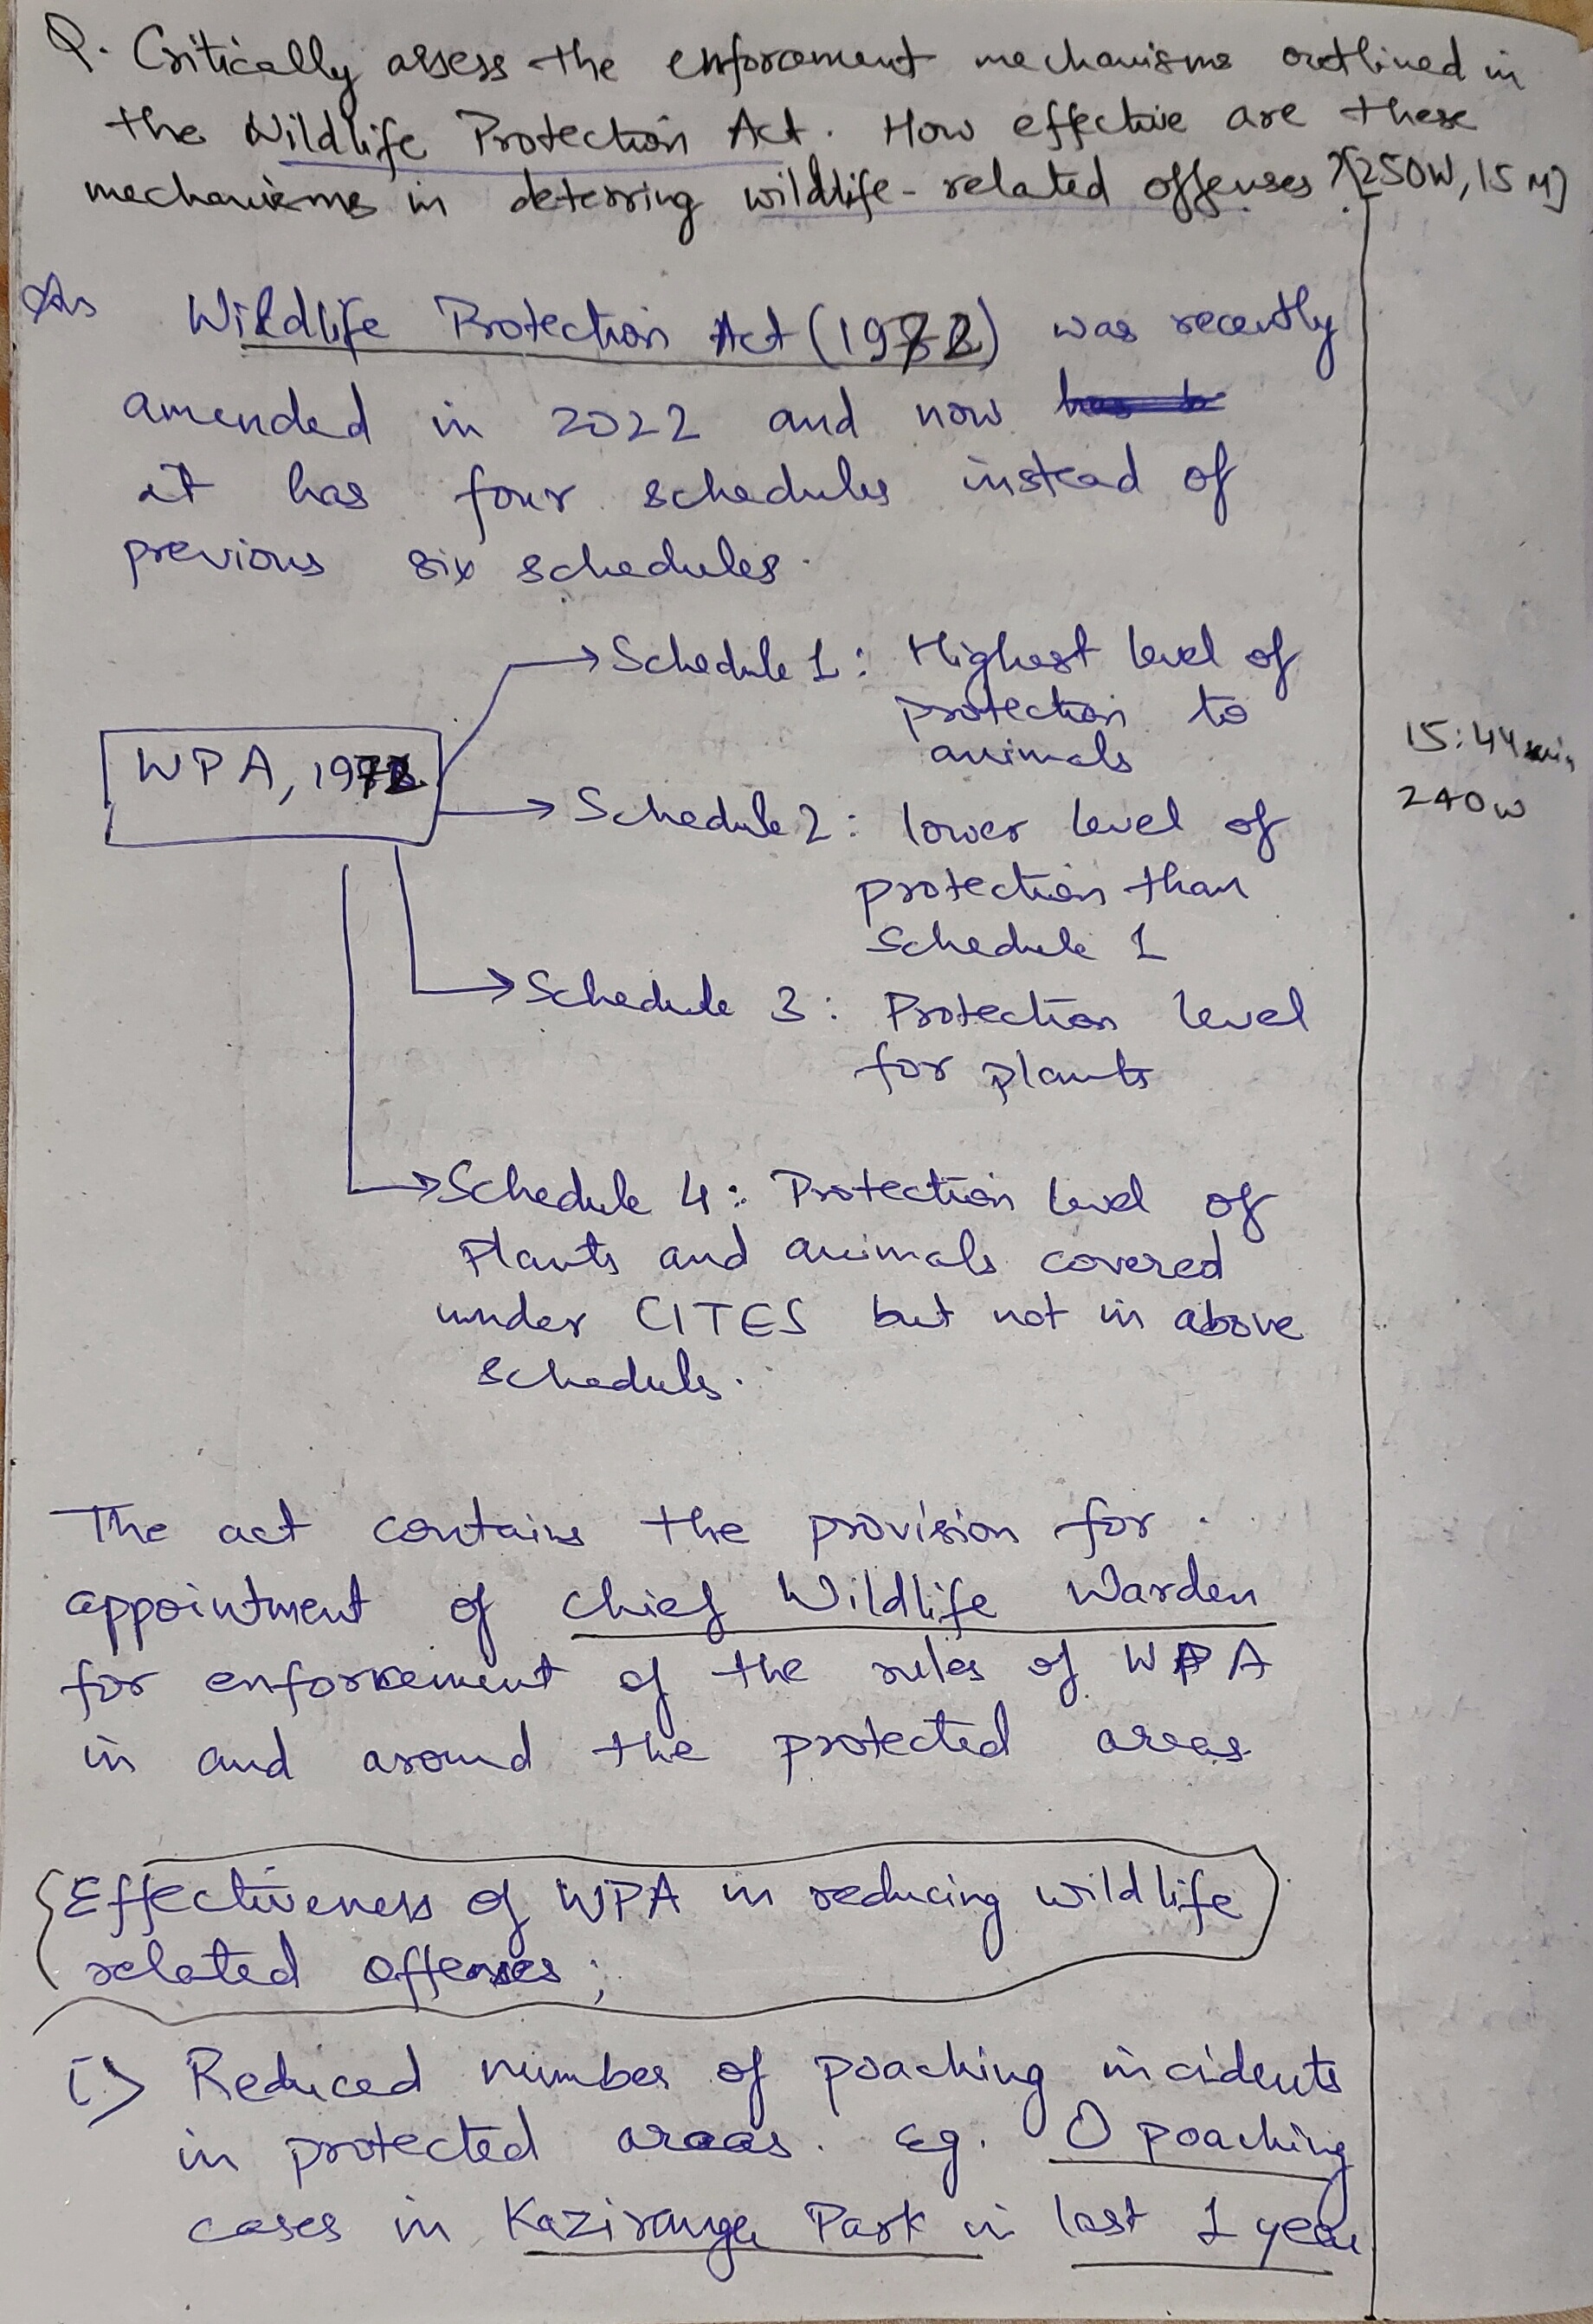 Q. Critically assess the enforcement mechanisms outlined in
the Wildlife Protection Act. How effective are these
mechanisms in deterring wildlife-related offenses ? [250W, 15 M]
Ans Wildlife Protection Act (1972) was recently
amended in 2022 and now
it has four schedules instead of
previous six schedules.
WPA, 1972
→ Schedule 1: Highest level of
protection to
animals
→ Schedule 2: lower level of
protection than
Schedule 1
→ Schedule 3: Protection level
for plants
→ Schedule 4: Protection level of
plants and animals covered
under CITES but not in above
schedules.
15:44 min
240w
The act contains the provision for
appointment of Chief Wildlife Warden
for enforcement of the rules of WPA
in and around the protected areas
Effectiveness of WPA in reducing wildlife
related offenses;
i> Reduced number of poaching incidents
in protected areas. Eg. 0 poaching
cases in Kaziranga Park in last 1 year